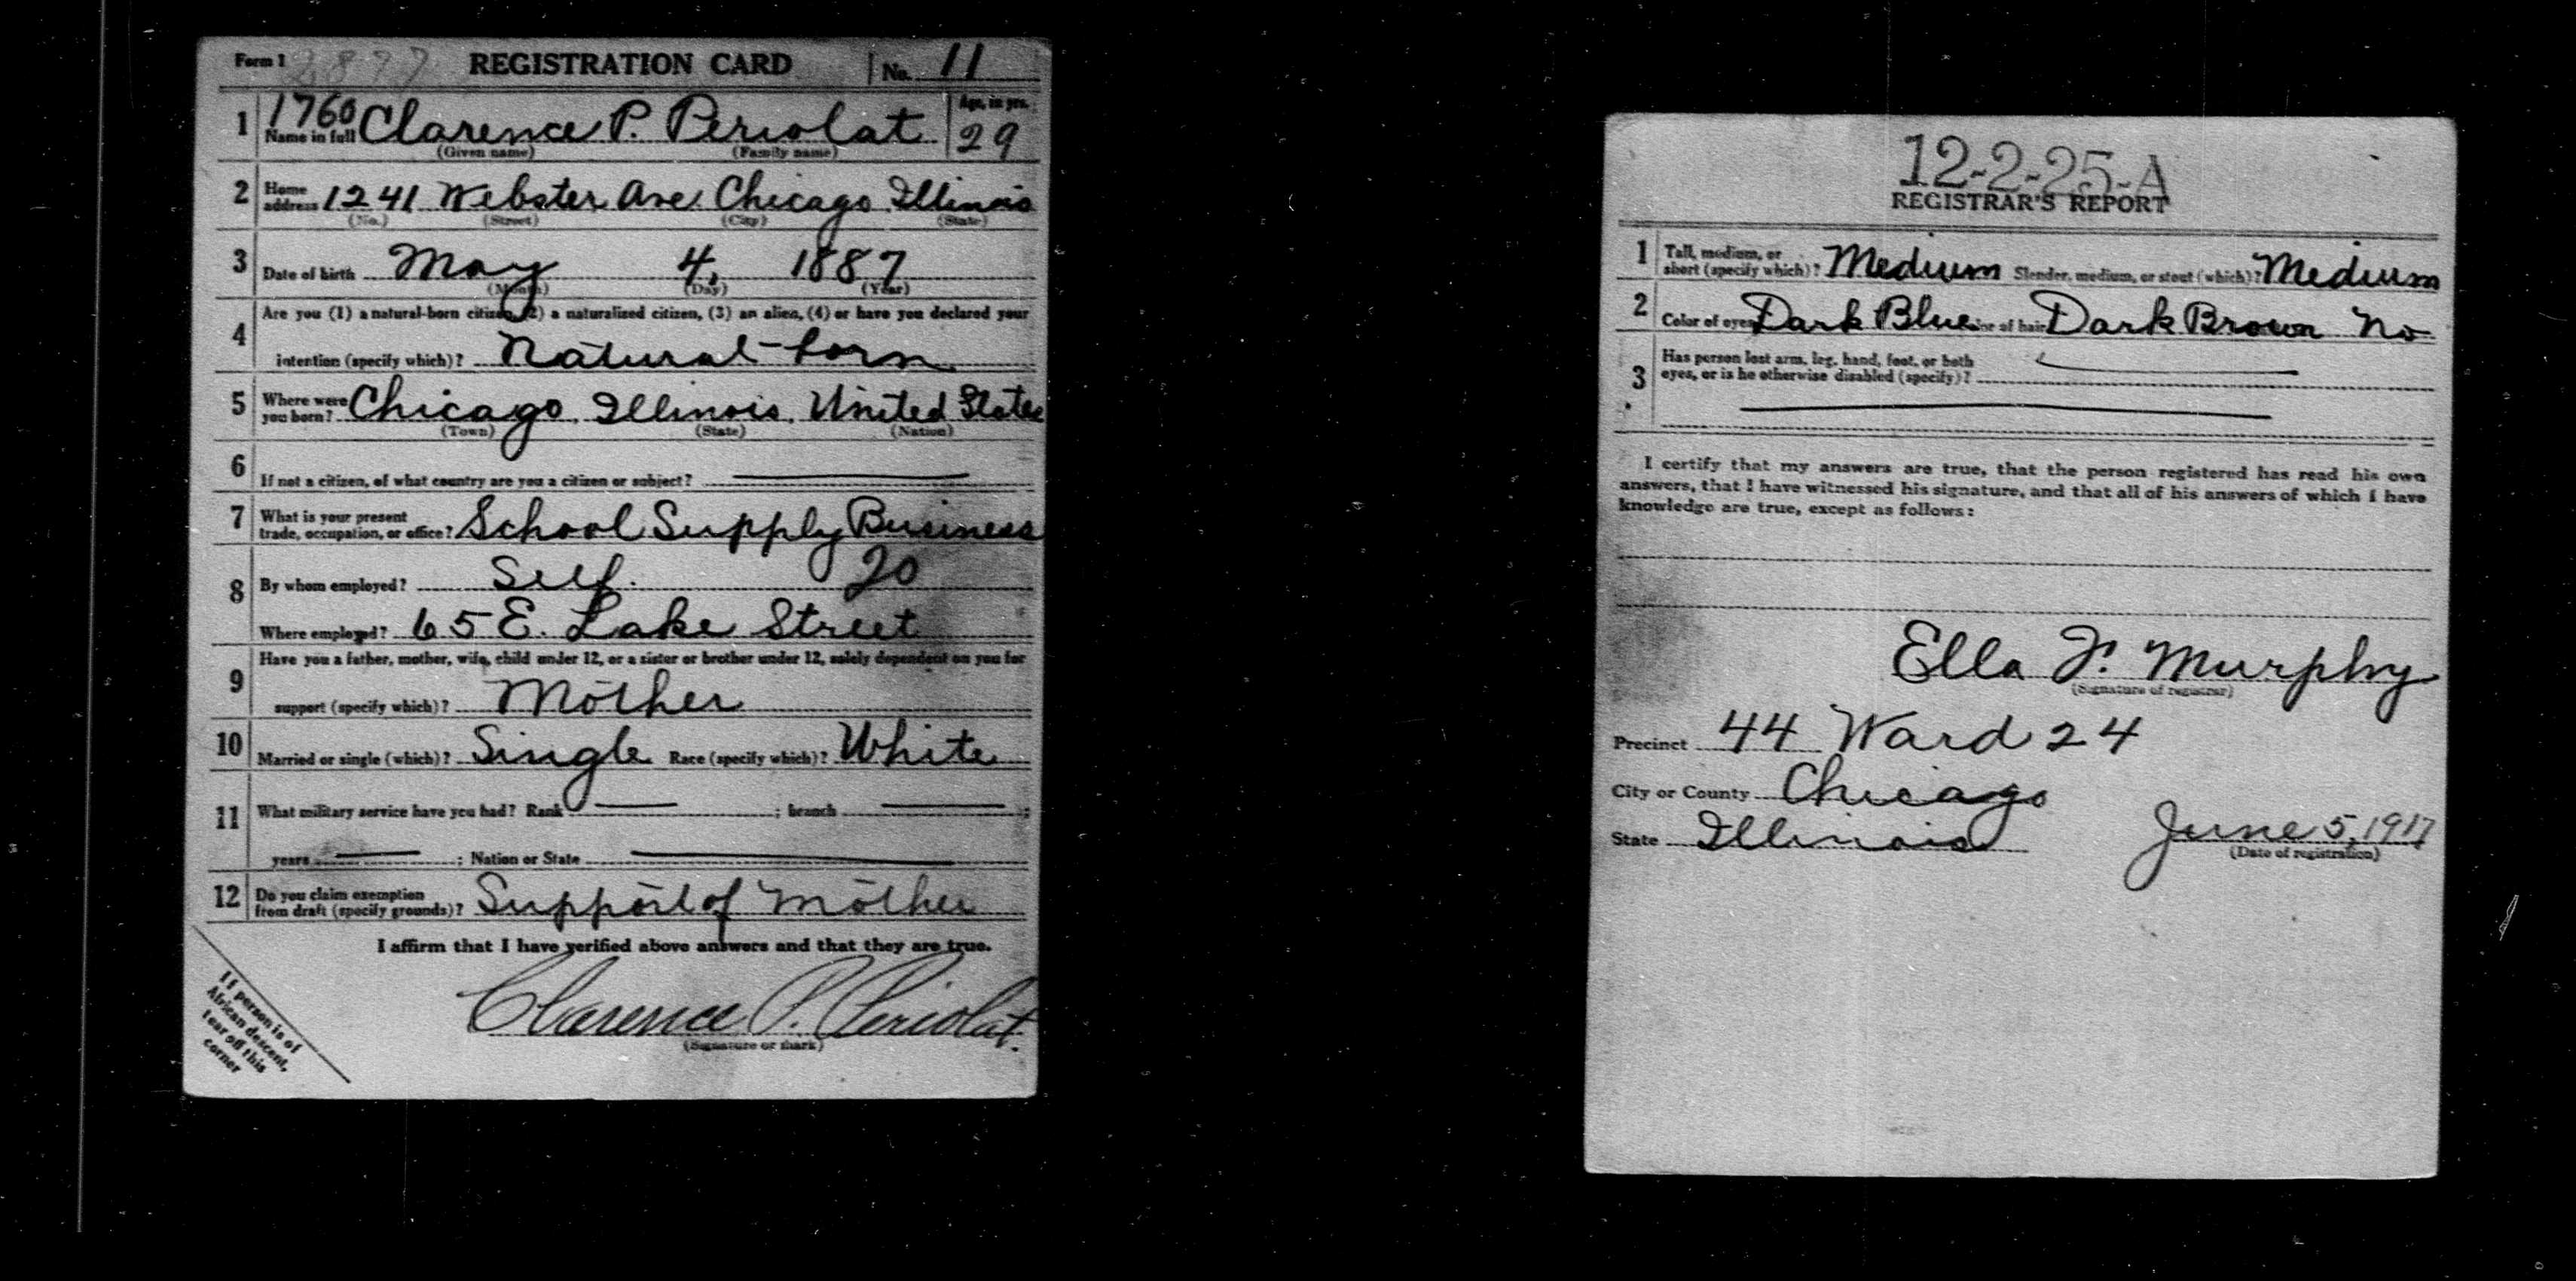 Form 1 2897 REGISTRATION CARD No. 11
1760 Age, in yrs.
1 Name in full Clarence P. Periolat 29
(Given name) (Family name)
2 Home address 1241 Webster Ave. Chicago Illinois
(No.) (Street) (City) (State)
3 Date of birth May 4, 1887
(Month) (Day) (Year)
4 Are you (1) a natural-born citizen, (2) a naturalized citizen, (3) an alien, (4) or have you declared your
intention (specify which)? Natural-born
5 Where were you born? Chicago, Illinois, United States
(Town) (State) (Nation)
6 If not a citizen, of what country are you a citizen or subject?
7 What is your present trade, occupation, or office? School Supply Business
20
8 By whom employed? Self.
Where employed? 65 E. Lake Street
9 Have you a father, mother, wife, child under 12, or a sister or brother under 12, solely dependent on you for
support (specify which)? Mother
10 Married or single (which)? Single Race (specify which)? White
11 What military service have you had? Rank ; branch ;
years ; Nation or State
12 Do you claim exemption from draft (specify grounds)? Support of Mother
I affirm that I have verified above answers and that they are true.
Clarence P. Periolat.
(Signature or mark)
If person is of
African descent,
tear off this
corner
12-2-25-A
REGISTRAR'S REPORT
1 Tall, medium, or short (specify which)? Medium Slender, medium, or stout (which)? Medium
2 Color of eyes Dark Blue Color of hair Dark Brown No
3 Has person lost arm, leg, hand, foot, or both
eyes, or is he otherwise disabled (specify)?
I certify that my answers are true, that the person registered has read his own
answers, that I have witnessed his signature, and that all of his answers of which I have
knowledge are true, except as follows:
Ella F. Murphy
(Signature of registrar)
Precinct 44 Ward 24
City or County Chicago
State Illinois June 5, 1917
(Date of registration)